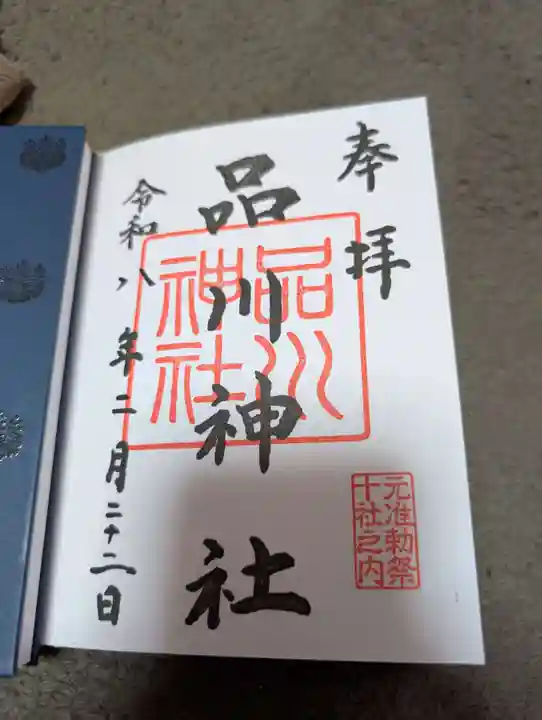 奉拝
品川神社
品川神社
元准勅祭
十社之内
令和八年二月二十二日